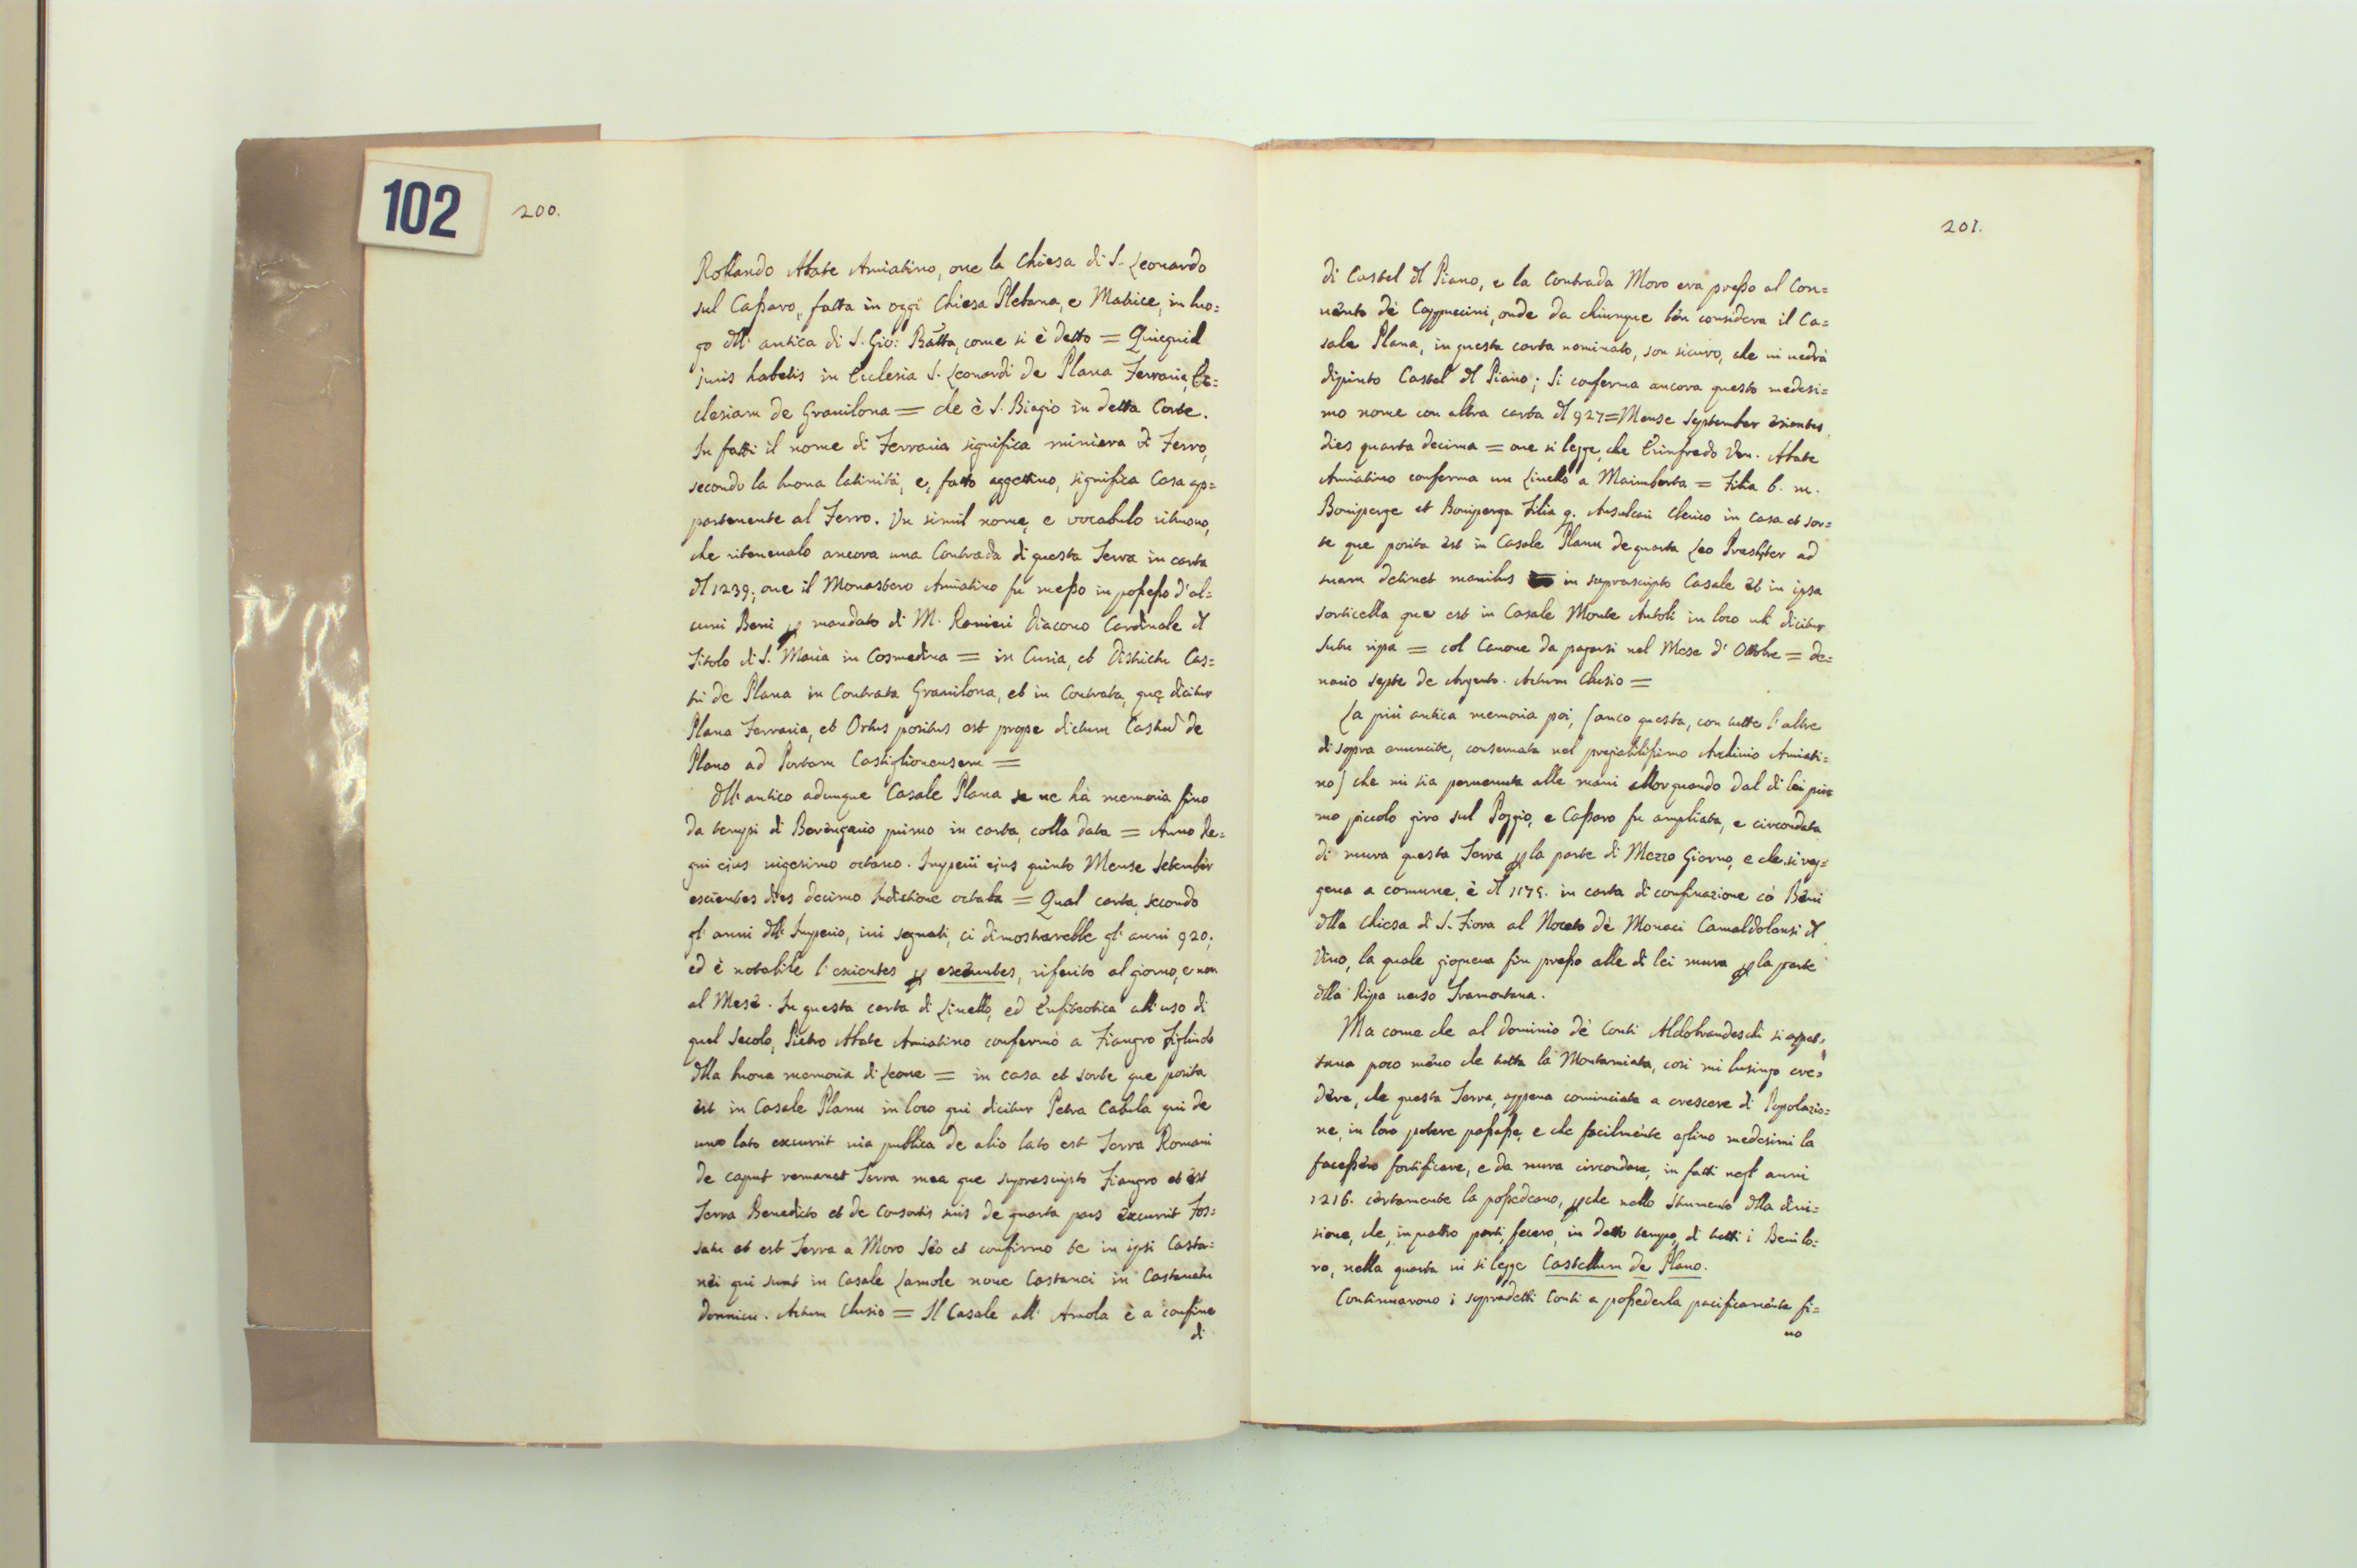 102
200.
Rollando Abate Amiatino, ove la Chiesa di S. Leonardo
sul Cassaro, fatta in oggi Chiesa Plebana, e Matrice, in luo=
go dll' antica di S. Gio: Batta, come si è detto = Quicquid
juris habetis in Ecclesia S. Leonardi de Plana Ferraria, Ec=
clesiam de Gravilona = che è S. Biagio in detta Corte.
In fatti il nome di Ferraria significa miniera di Ferro,
secondo la buona latinità, e, fatto aggettivo, significa Casa ap=
partenente al Ferro. Un simil nome, e vocabulo ritruovo,
che ritenevalo ancora una Contrada di questa Terra in carta
dl 1239., ove il Monastero Amiatino fu messo in possesso d'al=
cuni Beni p mandato di M. Ranieri Diacono Cardinale dl
Titolo di S. Maria in Cosmedina = in Curia, et Districtu Cas=
tri de Plana in Contrata Gravilona, et in Contrata, quę dicitur
Plana Ferraria, et Ortus positus est prope dictum Castrum de
Plano ad Portam Castiglionensem =
Dll' antico adunque Casale Plana se ne hà memoria fino
da tempi di Berengario primo in carta, colla data = Anno Re=
gni ejus vigesimo octavo. Imperii ejus quinto Mense Setember
escientes dies decimo Indictione octaba = Qual carta, secondo
gl' anni dll' Imperio, ivi segnati, ci dimostrarebbe gl' anni 920;
ed è notabile l'exientes p exeuntes, riferito al giorno, e non
al Mese. In questa carta di Livello, ed Enfiteotica all'uso di
quel Secolo, Pietro Abate Amiatino confermò a Fiangro Figliuolo
dlla buona memoria di Leone = in casa et sorte que posita
est in Casale Planu in loco qui dicitur Petra Cabula qui de
uno lato excurrit via publica de alio lato est Terra Romani
de caput remanet Terra mea que suprascripto Fiangro et est
Terra Benedicto et de Consortis suis de quarta pars excurrit Fos=
satu et est Terra a Moro Seo et confirmo te in ipsi Casta=
nei qui sunt in Casale Lamole nove Castanei in Castanetu
donnicu. Actum Clusio = Il Casale all' Amola è a confine
di
201.
di Castel dl Piano, e la Contrada Moro era presso al Con=
vento dè Cappuccini, onde da chiunque ben considera il Ca=
sale Plana, in questa carta nominato, son sicuro, che vi vedrà
dipinto Castel dl Piano; Si conferma ancora questo medesi=
mo nome con altra carta dl 927 = Mense September exientes
dies quarta decima = ove si legge, che Erinfredo Ven. Abate
Amiatino conferma un Livello a Maimberta = Filia b. m.
Boniperge et Boniperga Filia q. Ansulcari Clerico in casa et sor=
te que posita est in Casale Planu de quarta Leo Presbiter ad
suam detinet manibus in suprascripto Casale et in ipsa
sorticella que est in Casale Monte Autoli in loco ubi dicitur
Sutu ripa = col Canone da pagarsi nel Mese d' Ottobre = de=
nario septe de Argento. Actum Clusio =
La più antica memoria poi, (anco questa, con tutte l'altre
di sopra enunciate, conservata nel pregiabilissimo Archivio Amiati=
no) che mi sia pervenuta alle mani allor quando dal di lei pri=
mo piccolo giro sul Poggio, e Cassaro fu ampliata, e circondata
di mura questa Terra p la parte di Mezzo Giorno, e che si reg=
geva a comune, è dl 1175. in carta di confinazione cò Beni
dlla Chiesa di S. Fiora al Noceto dè Monaci Camaldolensi dl
Vivo, la quale giogneva fin presso alle di lei mura p la parte
dlla Ripa verso Tramontana.
Ma come che al Dominio dè Conti Aldobrandeschi si aspet=
tava poco meno che tutta la Montamiata, così mi lusingo cre=
dere, che questa Terra, appena cominciata a crescere di Popolazio=
ne, in loro potere passasse, e che facilmente eglino medesimi la
facessero fortificare, e da mura circondare, in fatti negl' anni
1216. certamente la possedeano, p che nello Strumento dlla divi=
sione, che, in quattro parti, fecero, in detto tempo, di tutti i Beni lo=
ro, nella quarta ivi si legge Castellum de Plano.
Continuarono i sopradetti Conti a possederla pacificamente fi=
no